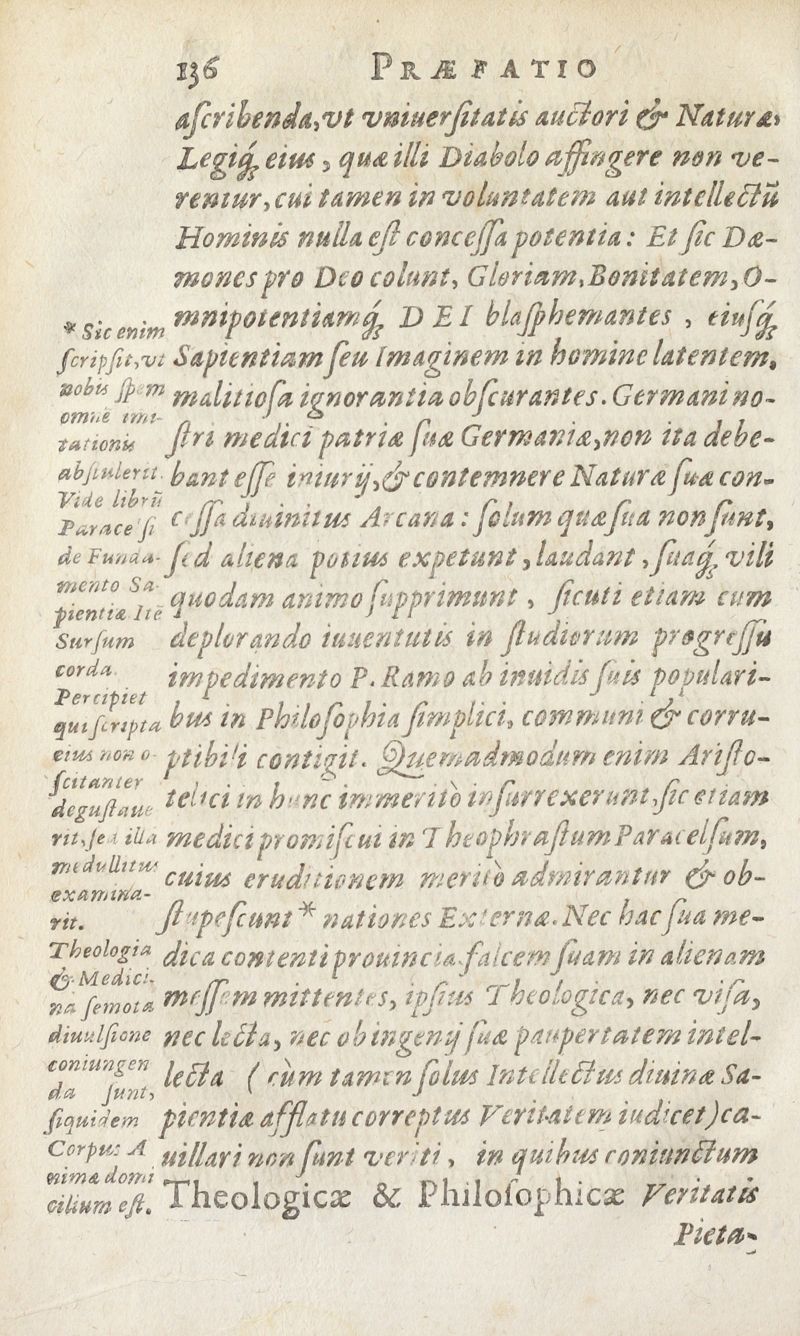 136 PRÆFATIO
aſcribenda, vt vniuerſitatis auctori & Naturæ,
Legiq́; eius, quæ illi Diabolo affingere non ve-
rentur, cui tamen in voluntatem aut intellectũ
Hominis nulla eſt conceſſa potentia: Et ſic Dæ-
mones pro Deo colunt, Gloriam, Bonitatem, O-
mnipotentiamq́; DEI blaſphemantes, eiuſq́;
Sapientiam ſeu Imaginem in homine latentem,
malitioſa ignorantia obſcurantes. Germani no-
ſtri medici patriæ ſuæ Germaniæ, non ita debe-
bant eſſe iniurij, & contemnere Naturæ ſuæ con-
ceſſa diuinitus Arcana: ſolum quæ ſua non ſunt,
ſed aliena potius expetunt, laudant, ſuaq́; vili
quodam animo ſupprimunt, ſicuti etiam cum
deplorando iuuentutis in ſtudiorum progreſſu
impedimento P. Ramo ab inuidis ſuis populari-
bus in Philoſophia ſimplici, communi & corru-
ptibili contigit. Quemadmodum enim Ariſto-
telici in hunc immeritò inſurrexerunt, ſic etiam
medici promiſcui in Theophraſtum Paracelſum,
cuius eruditionem meritò admirantur & ob-
ſtupeſcunt * nationes Externæ. Nec hac ſua me-
dica contenti prouincia falcem ſuam in alienam
meſſem mittentes, ipſius Theologica, nec viſa,
nec lecta, nec ob ingenij ſuæ paupertatem intel-
lecta (cùm tamen ſolus Intellectus diuinæ Sa-
pientiæ afflatu correptus Veritatem iudicet) ca-
uillari non ſunt veriti, in quibus coniunctum
Theologicæ & Philoſophicæ Veritatis
Pieta-
* Sic enim
ſcripſit, vt
nobis ſpem
omnẽ imi-
tationis
abſtulerit.
Vide librũ
Paracelſi
de Funda-
mento Sa-
pientiæ Itẽ
Surſum
corda.
Percipiet
qui ſcripta
eius non o-
ſcitanter
deguſtaue
rit, ſed illa
medullitus
examina-
rit.
Theologia
& Medici-
na ſemota
diuulſione
coniungen
da ſunt,
ſiquidem
Corpus A
nimæ domi
cilium eſt.